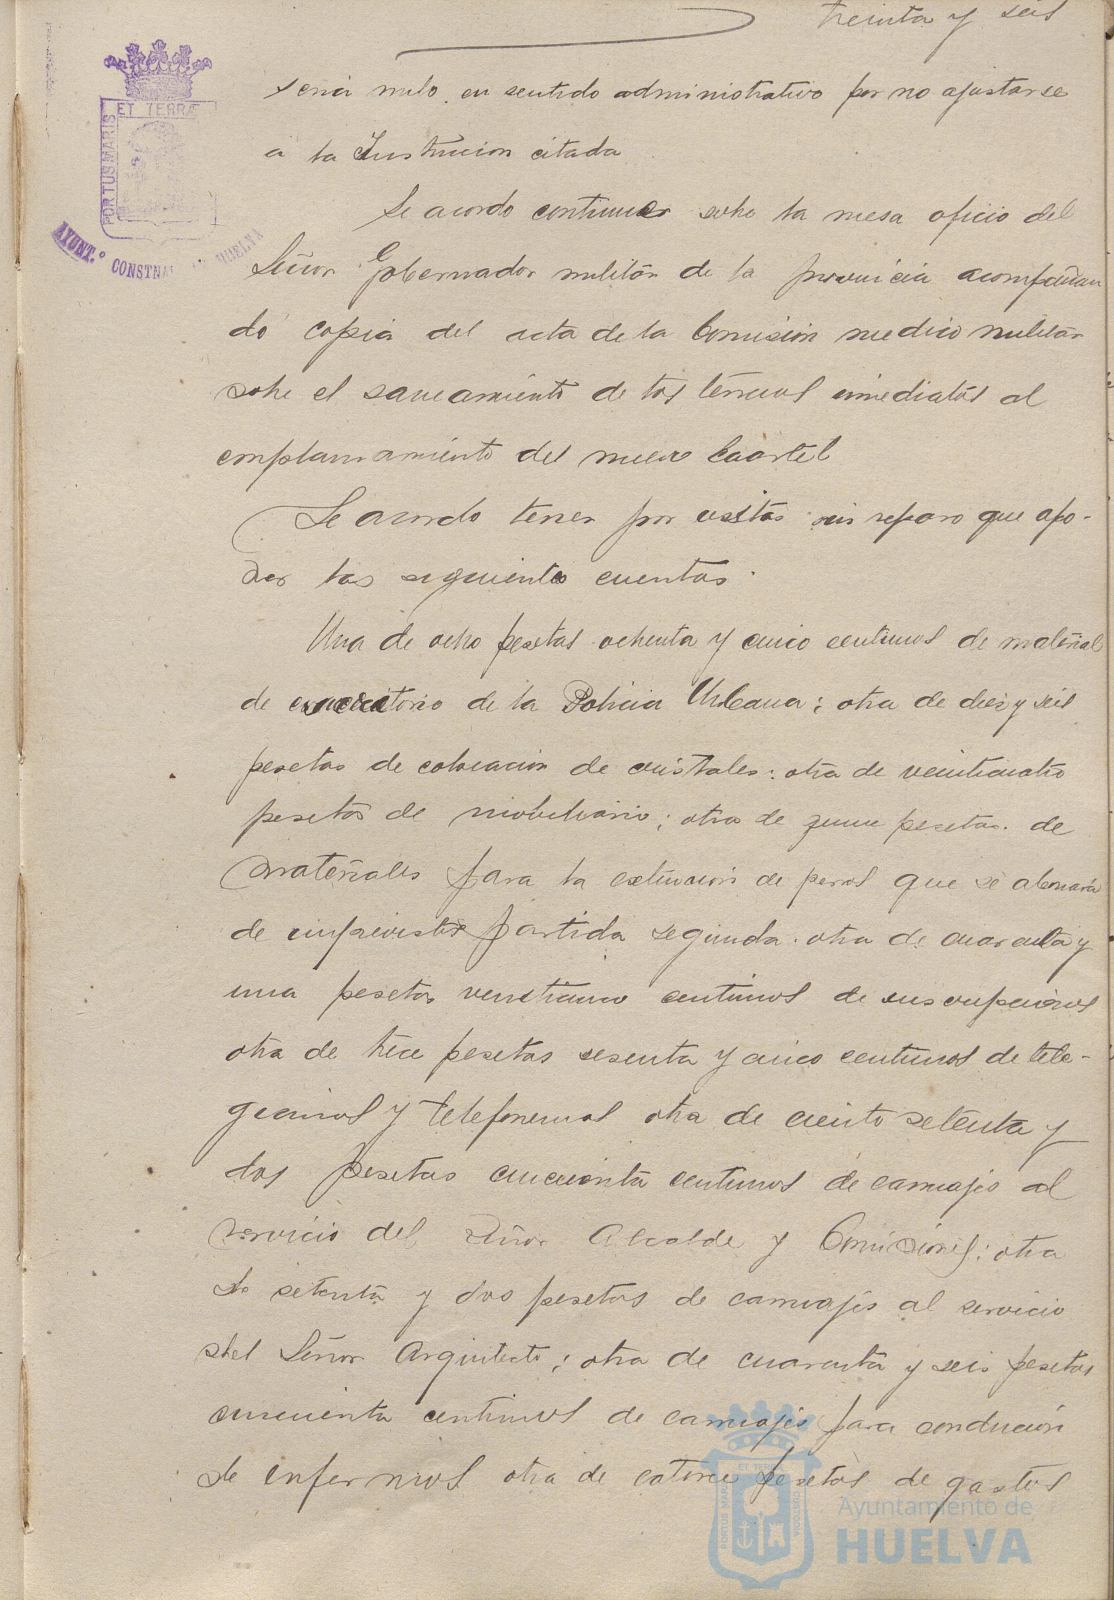 treinta y seis
PORTUS MARIS
ET TERRÆ
AYUNT.º CONSTNAL HUELVA
seria nulo en sentido administrativo por no ajustarse
a la Instrucion citada
Se acordo continuar sobre la mesa oficio del
Señor Gobernador militar de la provincia acompañan
do copia del acta de la Comision medico militar
sobre el saneamiento de los terrenos inmediatos al
emplazamiento del nuevo Cuartel
Se acordo tener por vistas sin reparo que opo-
ner las siguientes cuentas.
Una de ocho pesetas ochenta y cinco centimos de material
de escritorio de la Policia Urbana; otra de diez y seis
pesetas de colocacion de cristales; otra de veinticuatro
pesetas de mobiliario; otra de quince pesetas de
materiales para la extincion de perros que se abonará
de imprevistos partida segunda. otra de cuarenta y
una pesetas veinticinco centimos de suscripciones
otra de trece pesetas sesenta y cinco centimos de tele-
gramas y telefonemas otra de ciento setenta y
dos pesetas cincuenta centimos de carruajes al
servicio del Señor Alcalde y Comisiones; otra
de setenta y dos pesetas de carruajes al servicio
del Señor Arquitecto; otra de cuarenta y seis pesetas
cincuenta centimos de carruajes para conducion
de enfermos otra de catorce pesetas de gastos
Ayuntamiento de
HUELVA